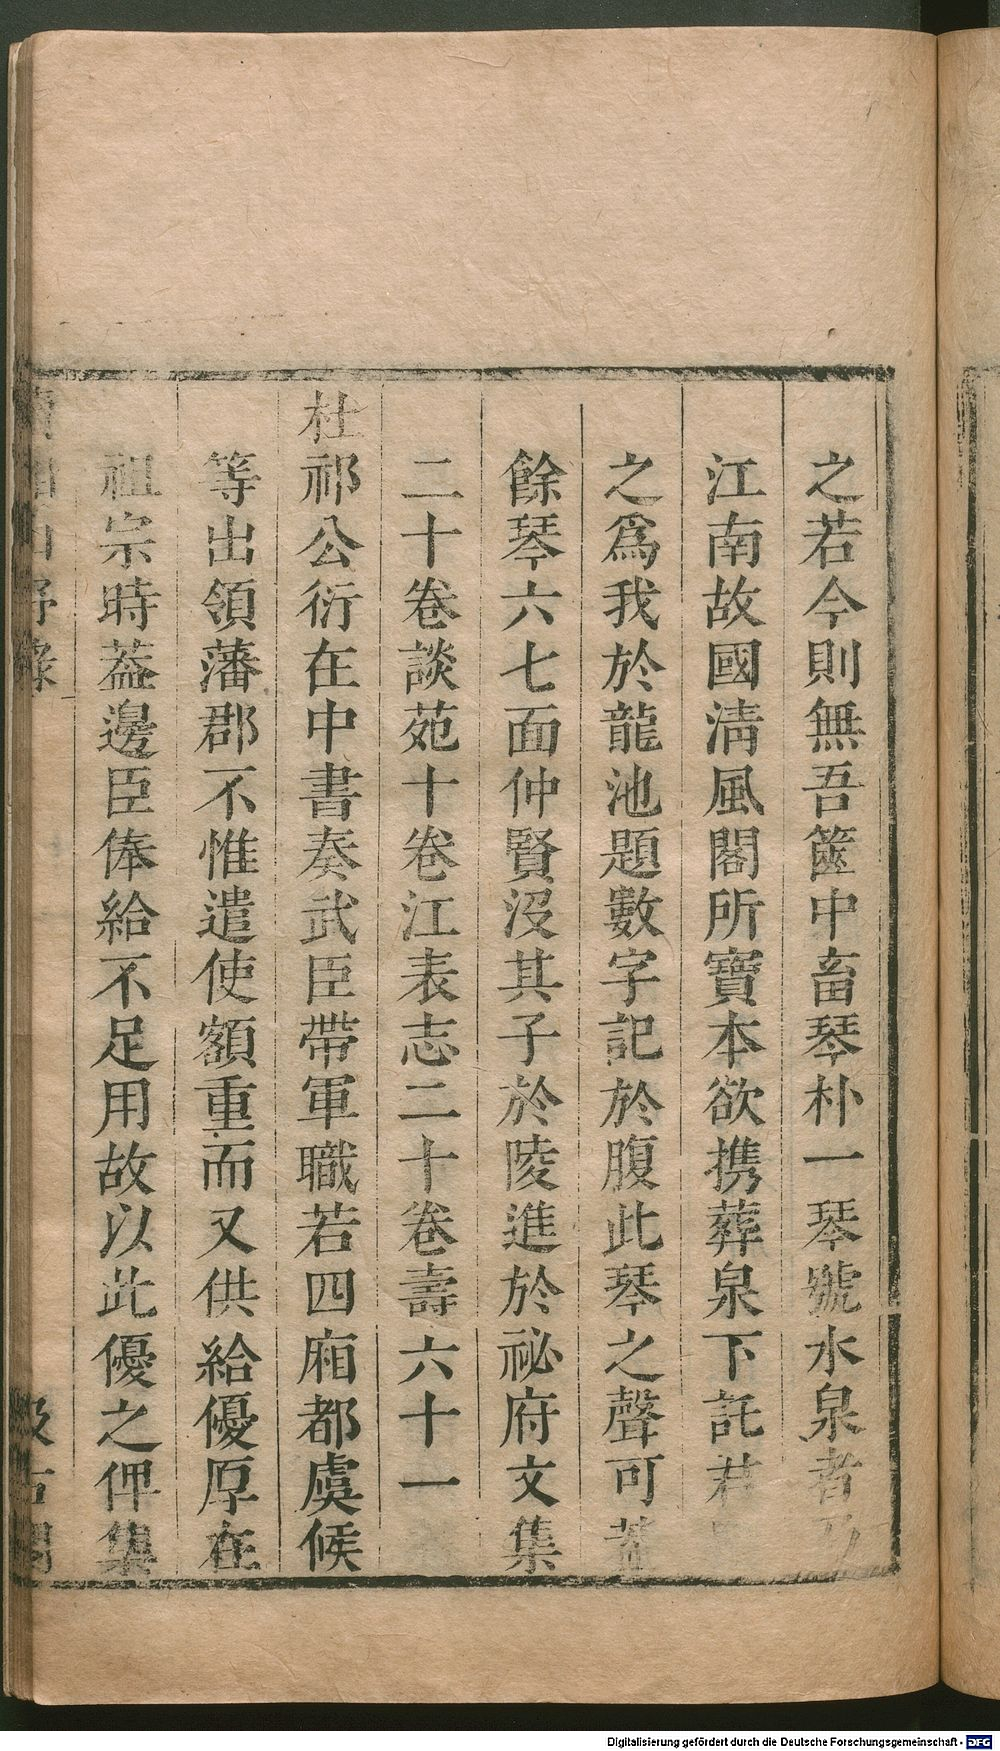 之若今則無吾篋中畜琴朴一琴號水泉者乃
江南故國淸風閣所寶本欲携葬泉下託君
之爲我於龍池題數字記於腹此琴之聲可蓋
餘琴六七面仲賢沒其子於陵進於祕府文集
二十卷談苑十卷江表志二十卷壽六十一
杜祁公衍在中書奏武臣帶軍職若四廂都虞候
等出領藩郡不惟遣使額重而又供給優厚在
祖宗時葢邊臣俸給不足用故以此優之俾集
湘山野錄
汲古閣
Digitalisierung gefördert durch die Deutsche Forschungsgemeinschaft - DFG